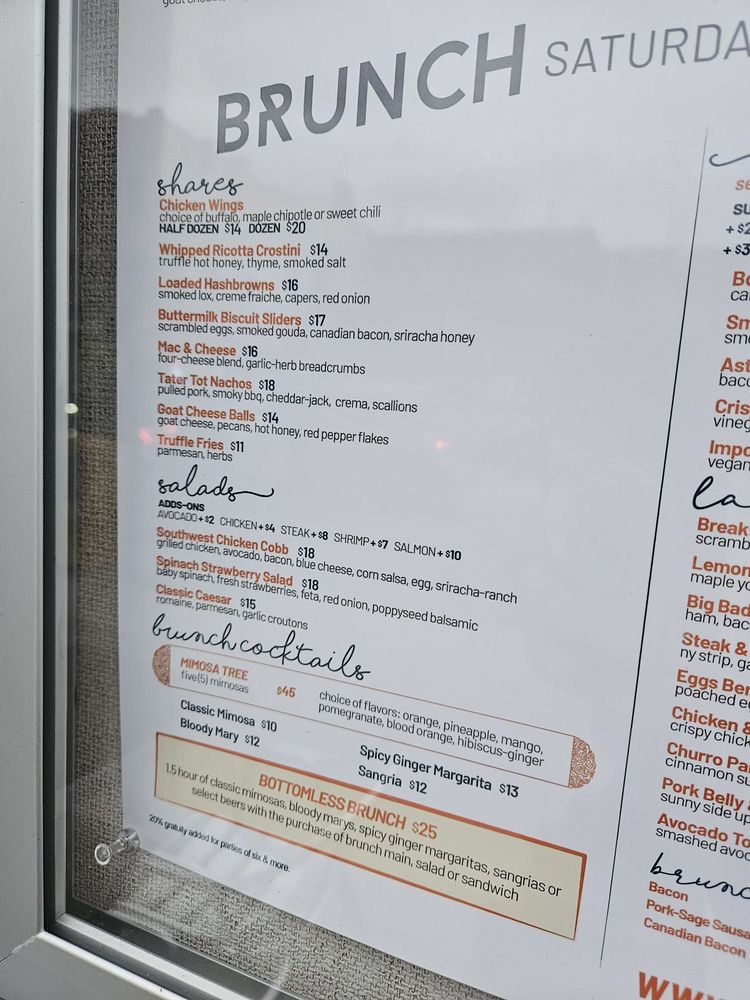 BRUNCH
shares
Chicken Wings
choice of buffalo, maple chipotle or sweet chili
HALF DOZEN $14 DOZEN $20
Whipped Ricotta Crostini $14
truffle hot honey, thyme, smoked salt
Loaded Hashbrowns $16
smoked lox, creme fraiche, capers, red onion
Buttermilk Biscuit Sliders $17
scrambled eggs, smoked gouda, canadian bacon, sriracha honey
Mac & Cheese $16
four-cheese blend, garlic-herb breadcrumbs
Tater Tot Nachos $18
pulled pork, smoky bbq, cheddar-jack, crema, scallions
Goat Cheese Balls $14
goat cheese, pecans, hot honey, red pepper flakes
Truffle Fries $11
parmesan, herbs
salads
ADDS-ONS
AVOCADO + $2 CHICKEN + $4 STEAK + $8 SHRIMP + $7 SALMON + $10
Southwest Chicken Cobb $18
grilled chicken, avocado, bacon, blue cheese, corn salsa, egg, sriracha-ranch
Spinach Strawberry Salad $18
baby spinach, fresh strawberries, feta, red onion, poppyseed balsamic
Classic Caesar $15
romaine, parmesan, garlic croutons
brunch cocktails
MIMOSA TREE
five(5) mimosas $45
choice of flavors: orange, pineapple, mango,
pomegranate, blood orange, hibiscus-ginger
Classic Mimosa $10
Bloody Mary $12
Spicy Ginger Margarita $13
Sangria $12
BOTTOMLESS BRUNCH $25
1.5 hour of classic mimosas, bloody marys, spicy ginger margaritas, sangrias or
select beers with the purchase of brunch main, salad or sandwich
20% gratuity added for parties of six & more.
SATURDA
+ $2
+ $3
vineg
vegan
Break
scramb
Lemon
maple yo
Big Bad
ham, bac
Steak &
ny strip, ga
Eggs Ben
poached e
Chicken &
crispy chick
Churro Pa
cinnamon su
Pork Belly
sunny side up
Avocado To
smashed avoc
brunc
Bacon
Pork-Sage Sausa
Canadian Bacon